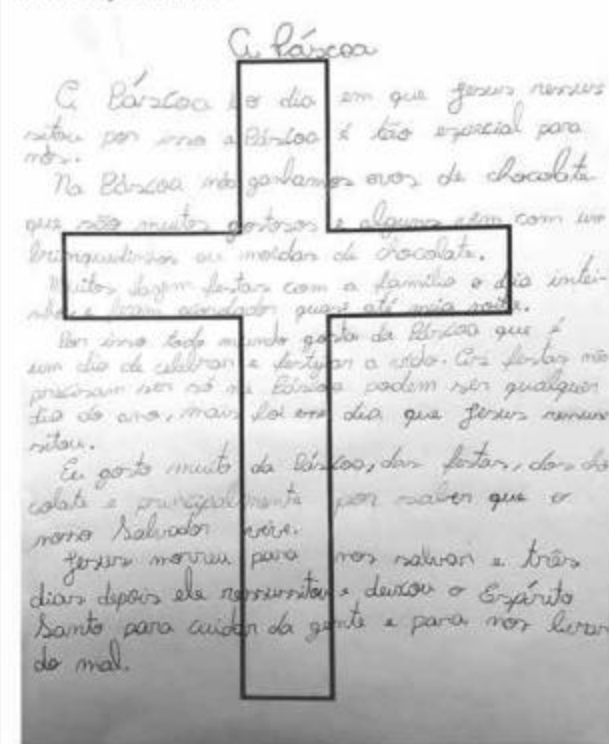 A Páscoa
A Páscoa é o dia em que Jesus ressus
sitou por isso a Páscoa é tão especial para
nós.
Na Páscoa nós ganhamos ovos de chocolate
que são muitos gostosos e alguns vêm com um
brinquedinhos ou moedas de chocolate.
Muitos fazem festas com a família o dia intei-
e ficam acordados quase até meia noite.
Por isso todo mundo gosta da Páscoa que é
um dia de celebrar e festejar a vida. As festas não
precisam ser só na Páscoa podem ser qualquer
dia do ano, mais foi esse dia que Jesus ressus
sitou.
Eu gosto muito da Páscoa, das festas, dos cho
colate e principalmente por saber que o
nosso Salvador vive.
Jesus morreu para nos salvar e três
dias depois ele ressussitou e deixou o Espírito
Santo para cuidar da gente e para nos livrar
do mal.